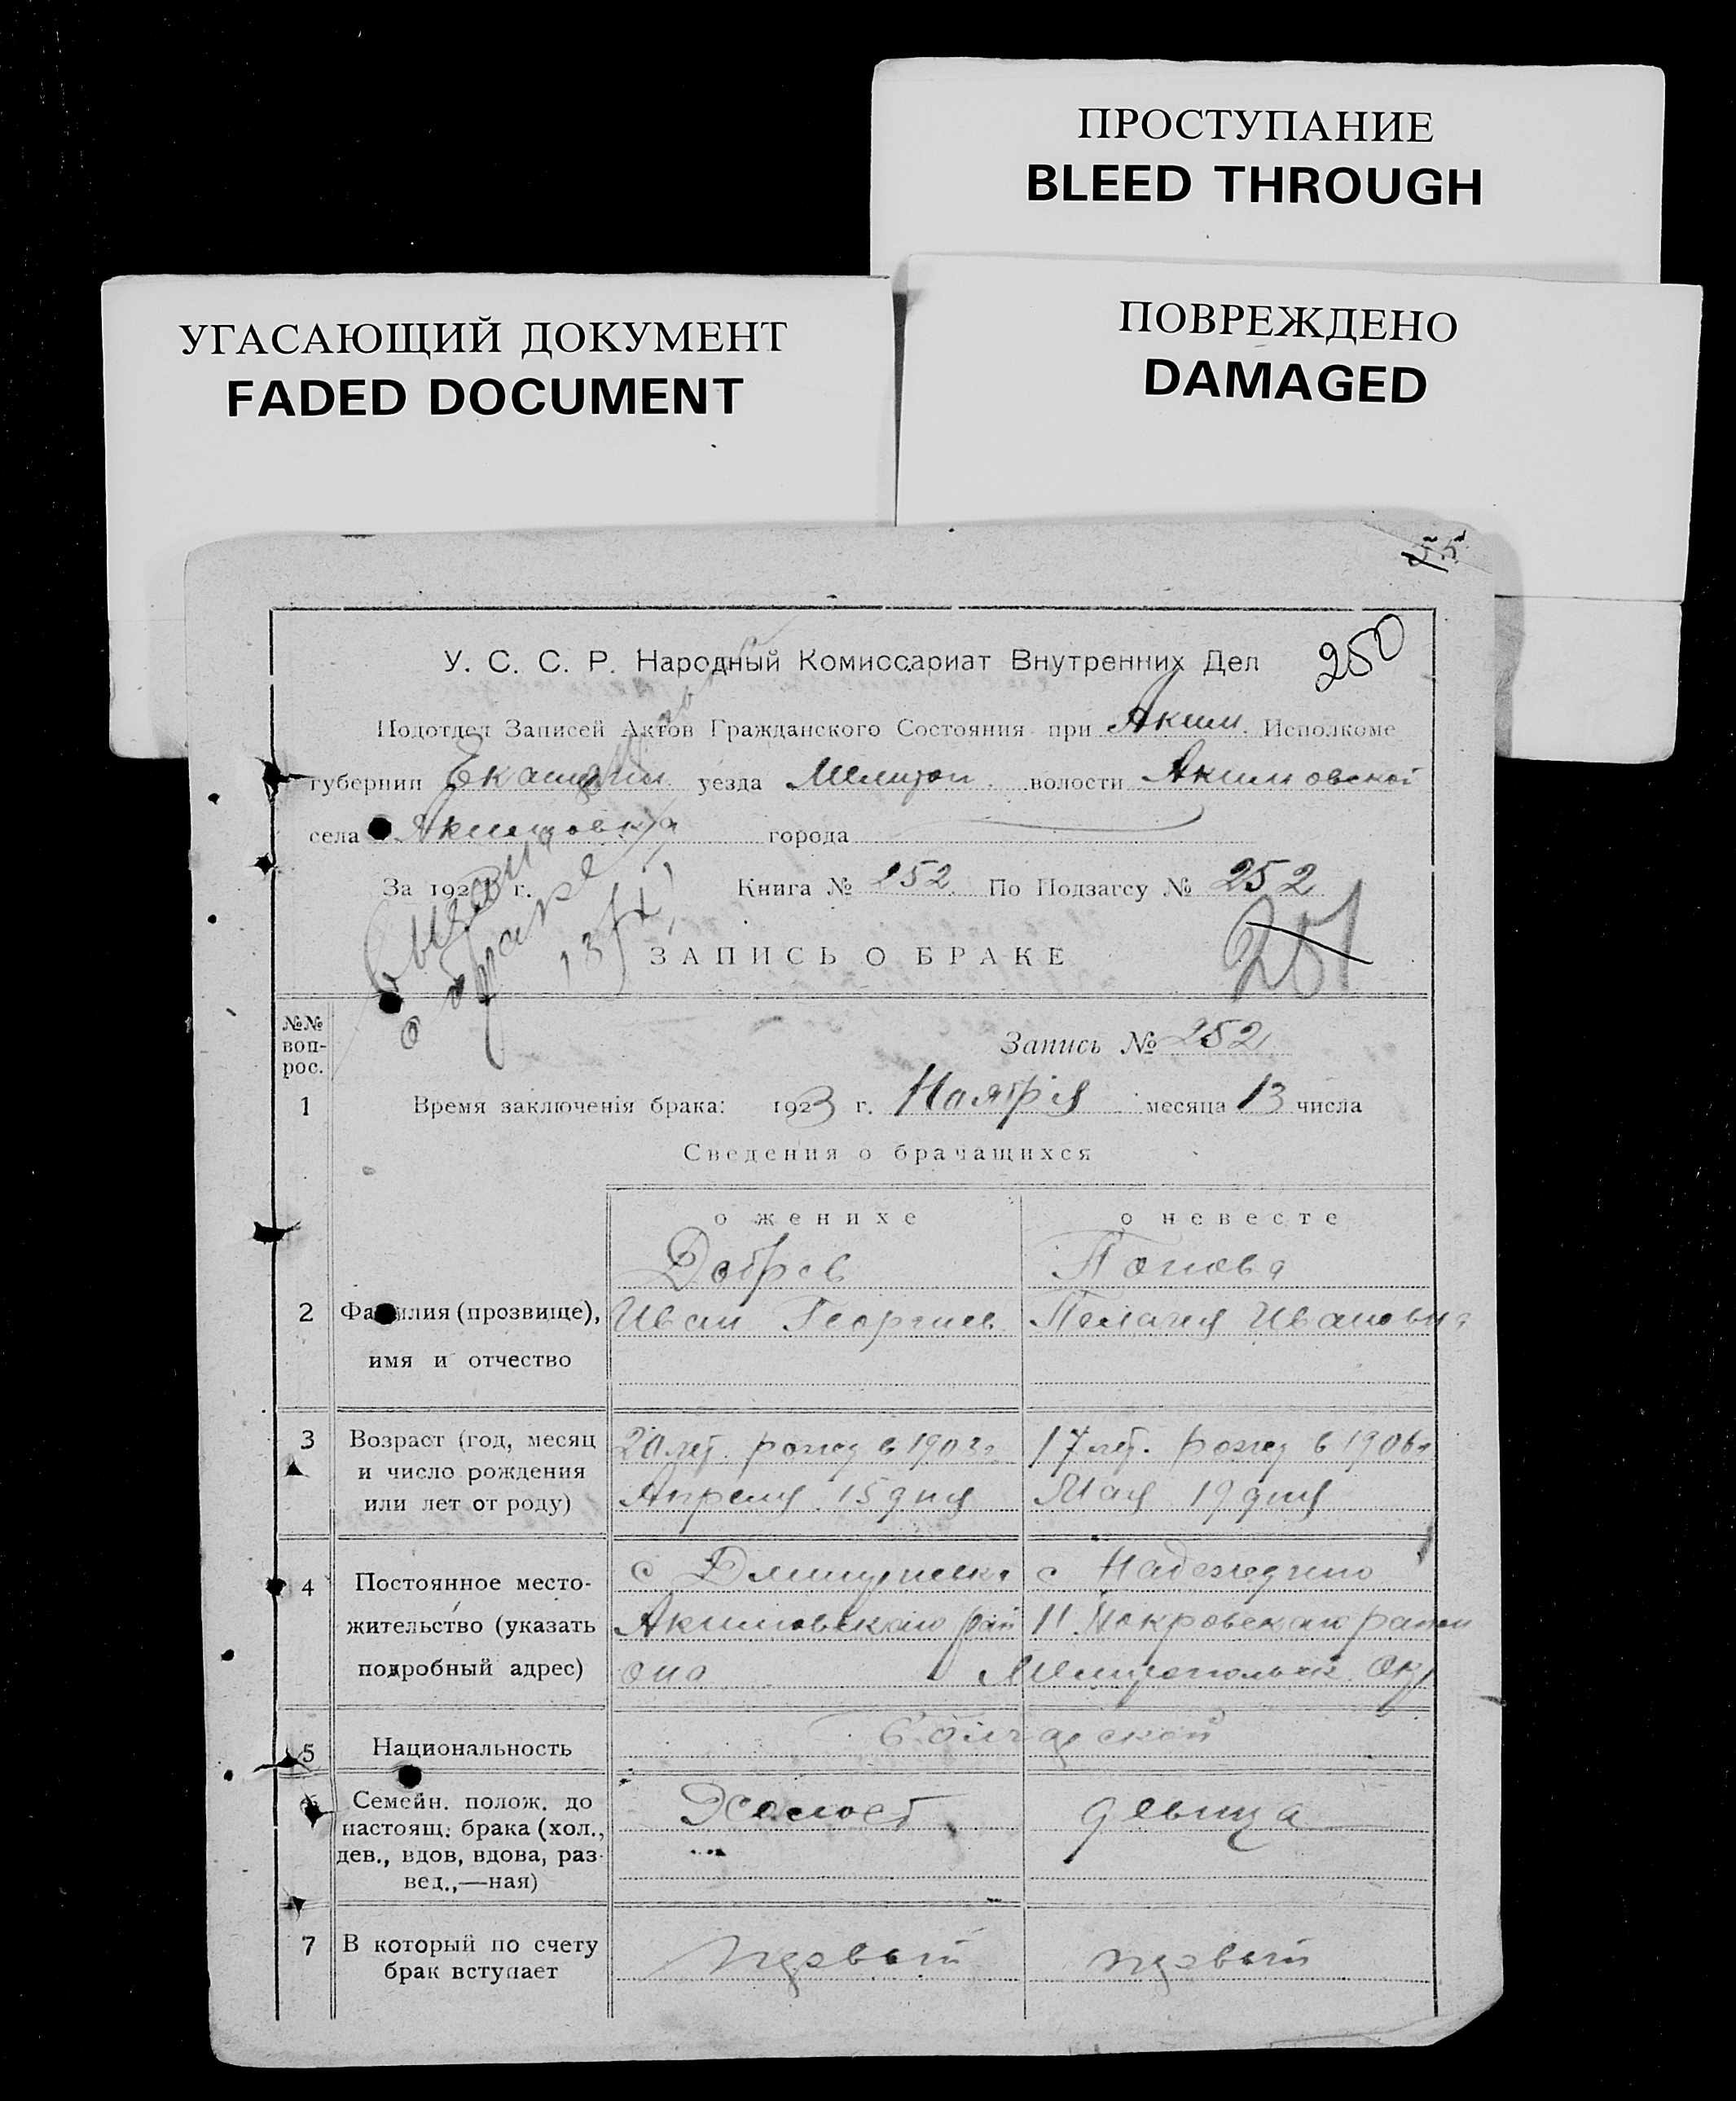 ПРОСТУПАНИЕ
BLEED THROUGH
УГАСАЮЩИЙ ДОКУМЕНТ
FADED DOCUMENT
ПОВРЕЖДЕНО
DAMAGED
55
250
У. С. С. Р. Народный Комиссариат Внутренних Дел
Подотдел Записей Актов Гражданского Состояния при Аким. Исполкоме
губернии Екатерин уезда Мелитоп. волости Акимовской
села Акимовка города
За 1923 г. Книга № 252 По Подзагсу № 252
о браке
13/X
251
ЗАПИСЬ О БРАКЕ
№№ воп-рос.
Запись № 252
1 Время заключенія брака: 1923 г. Ноября месяца 13 числа
Сведения о брачащихся
о женихе о невесте
Добрев Попова
2 Фамилия (прозвище), Иван Георгиев Пелагея Ивановна
имя и отчество
3 Возраст (год, месяц 20 лет. рожд в 1903 г 17 лет. рожд в 1906 г
и число рождения Апреля 15 дня Мая 19 дня
или лет от роду)
4 Постоянное место- с Дмитриевка с Надеждино
жительство (указать Акимовского рай Н. Покровского район
подробный адрес) она Мелитопольск. Окр
5 Национальность Болгарской
6 Семейн. полож. до Холост девица
настоящ. брака (хол.,
дев., вдов, вдова, раз-
вед.,—ная)
7 В который по счету первый первый
брак вступает